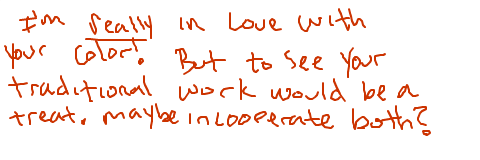 I'm really in love with
your color! But to see your
traditional work would be a
treat. maybe incooperate both?